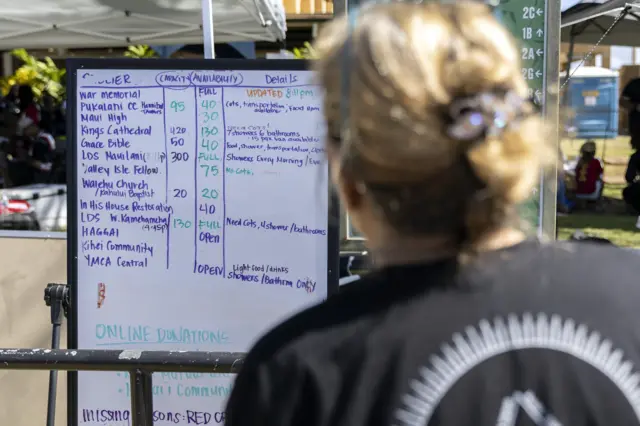 CAPACITY AVAILABILITY Details
War memorial FULL UPDATED 8:11pm
Pukalani CC 95 40 Cots, transportation available, Food
Maui High 30
Kings Cathedral 420 130 7 showers & bathrooms
Grace Bible 50 40 Food, shower, transportation,
LDS Kahului 300 FULL Showers Every Morning /
Valley Isle Fellow. 75 No Cots
Waiehu Church
Kahului Baptist 20 20
In His House Restoration 40
LDS W. Kamehameha (4:45p) 130 FULL Need Cots, 4 shower / bathrooms
HAGGAI OPEN
Kihei Community
YMCA Central OPEN Light food / drinks
Showers / Bathrm Only
ONLINE DONATIONS
Community
MISSING RED
2C
1B
2A
2G